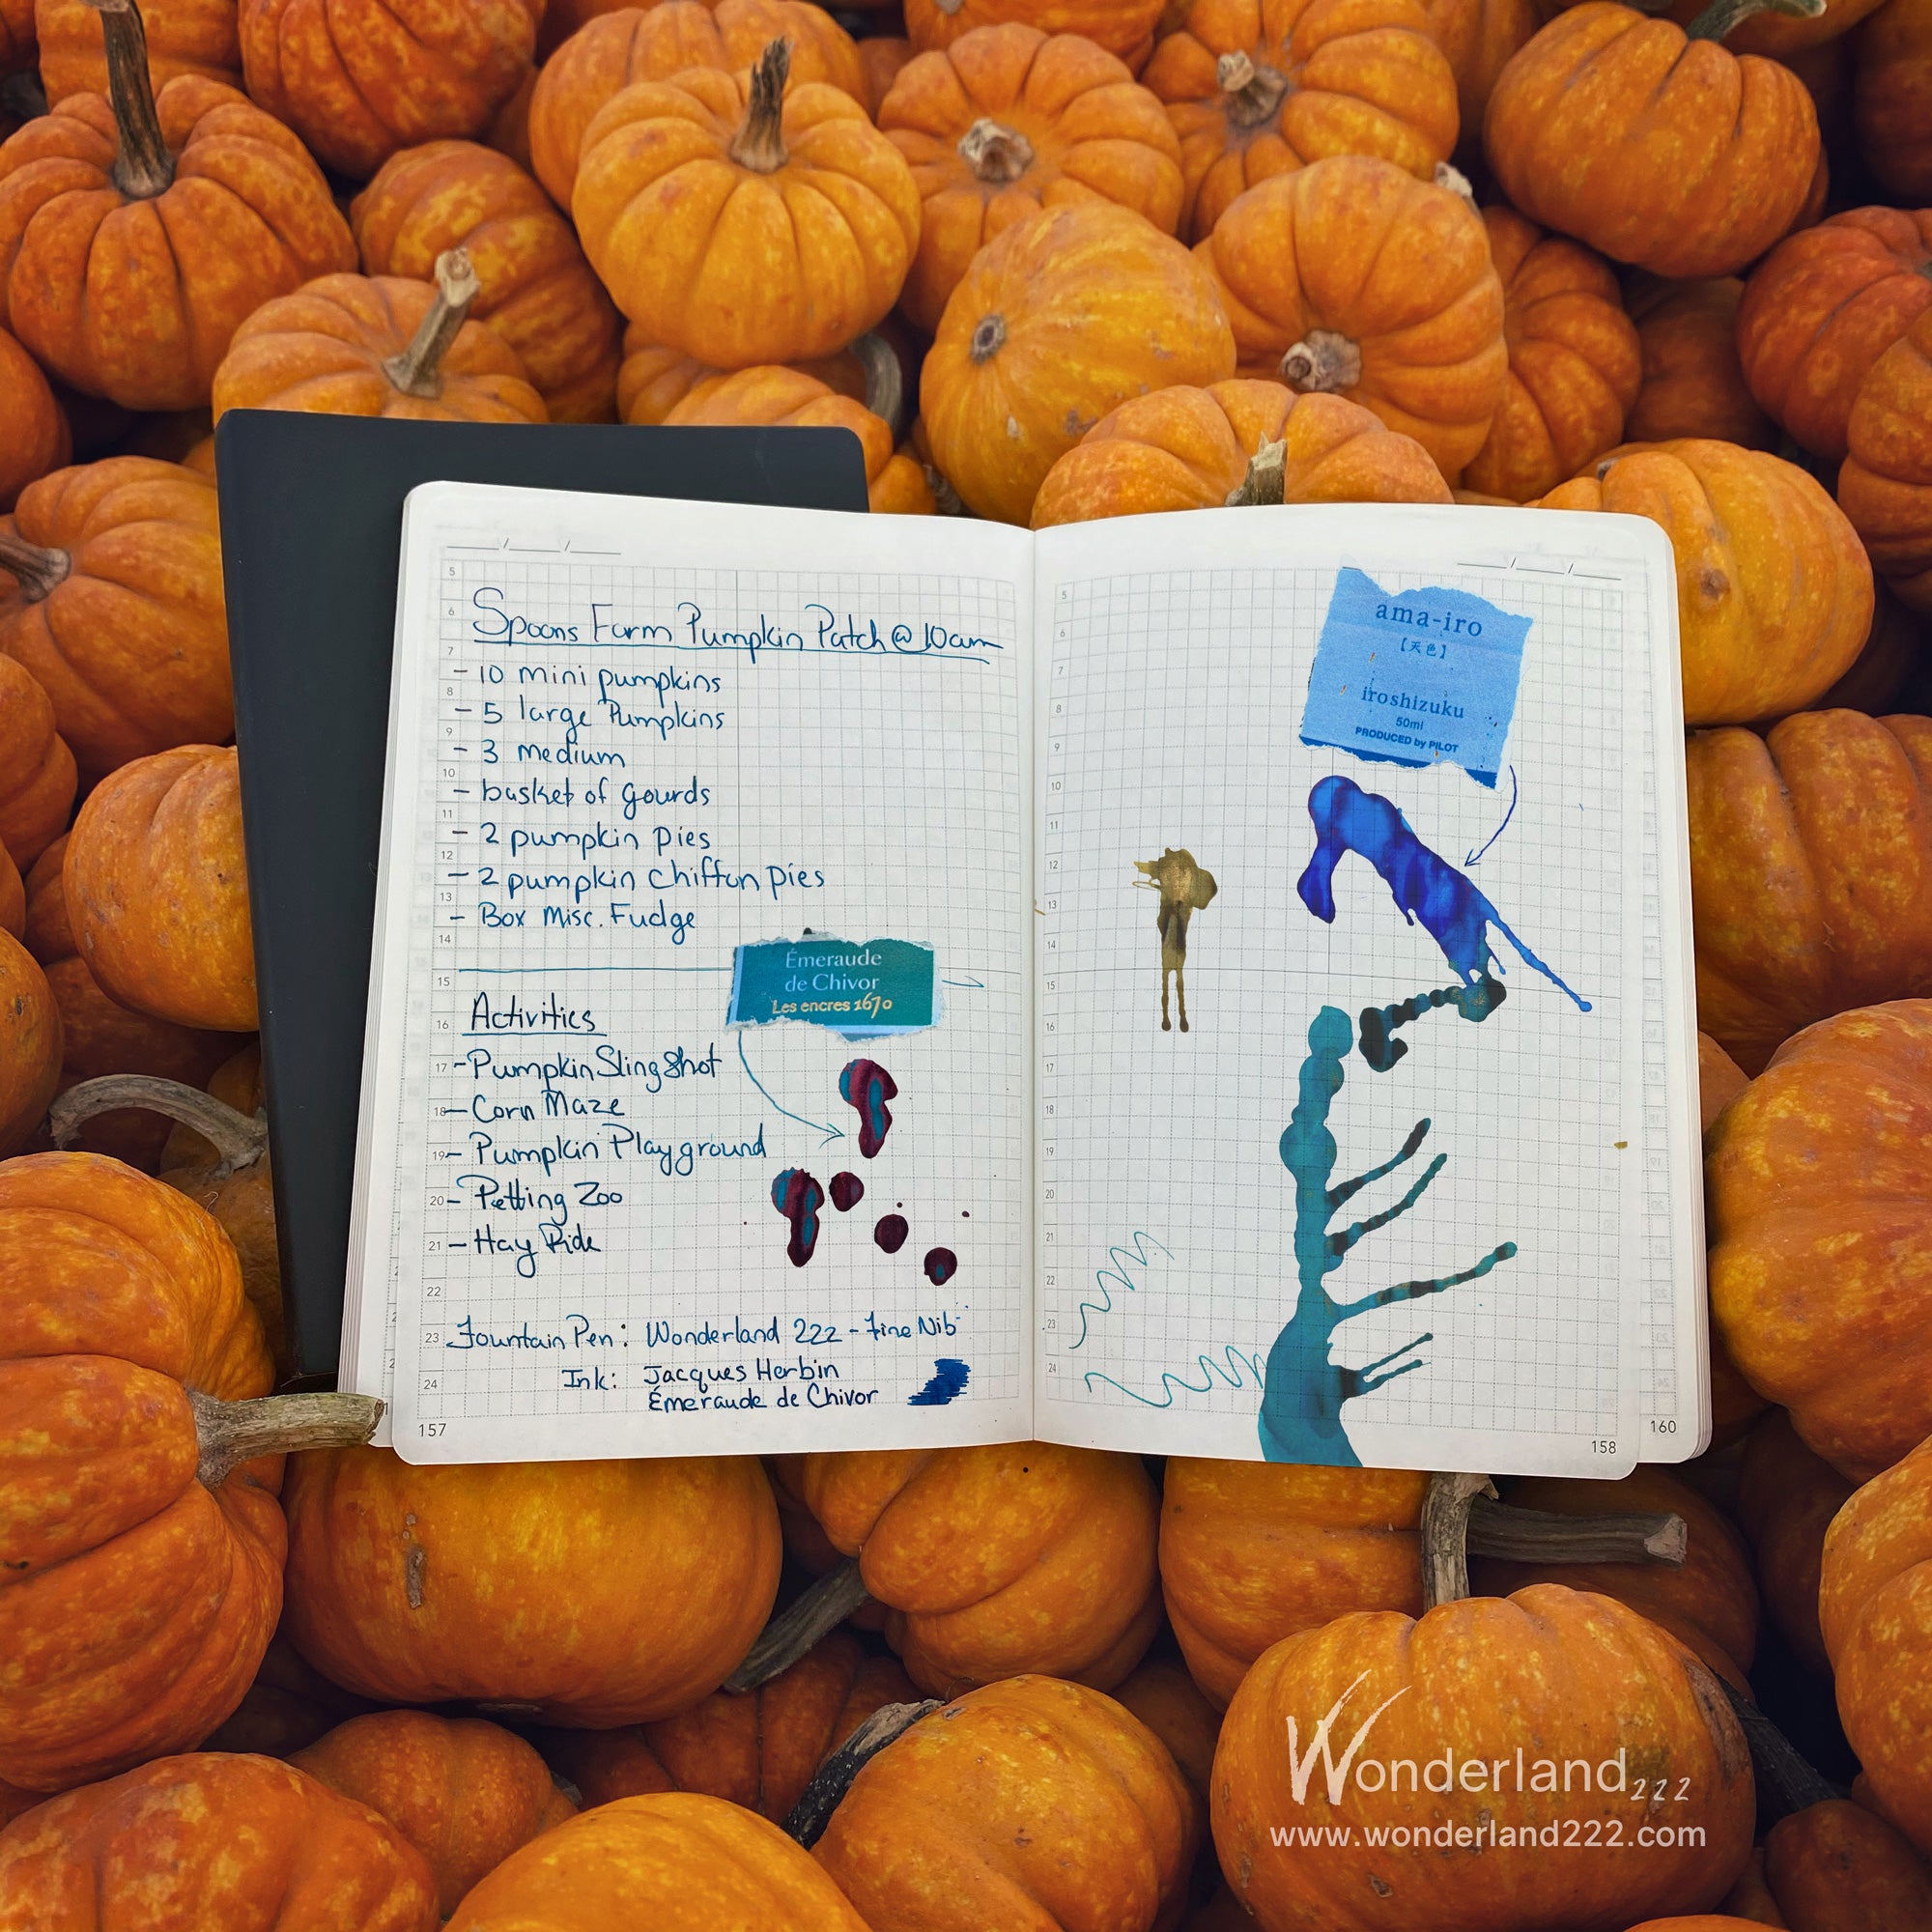 Spoons Farm Pumpkin Patch @ 10am
- 10 mini pumpkins
- 5 large Pumpkins
- 3 medium
- basket of gourds
- 2 pumpkin pies
- 2 pumpkin chiffon pies
- Box Misc. Fudge
Émeraude
de Chivor
Les encres 1670
Activities
- Pumpkin Sling Shot
- Corn Maze
- Pumpkin Playground
- Petting Zoo
- Hay Ride
Fountain Pen: Wonderland 222 - Fine Nib
Ink: Jacques Herbin
Émeraude de Chivor
5
6
7
8
9
10
11
12
13
14
15
16
17
18
19
20
21
22
23
24
157
ama-iro
【天色】
iroshizuku
50ml
PRODUCED by PILOT
5
6
7
8
9
10
11
12
13
14
15
16
17
18
19
20
21
22
23
24
158
160
Wonderland222
www.wonderland222.com